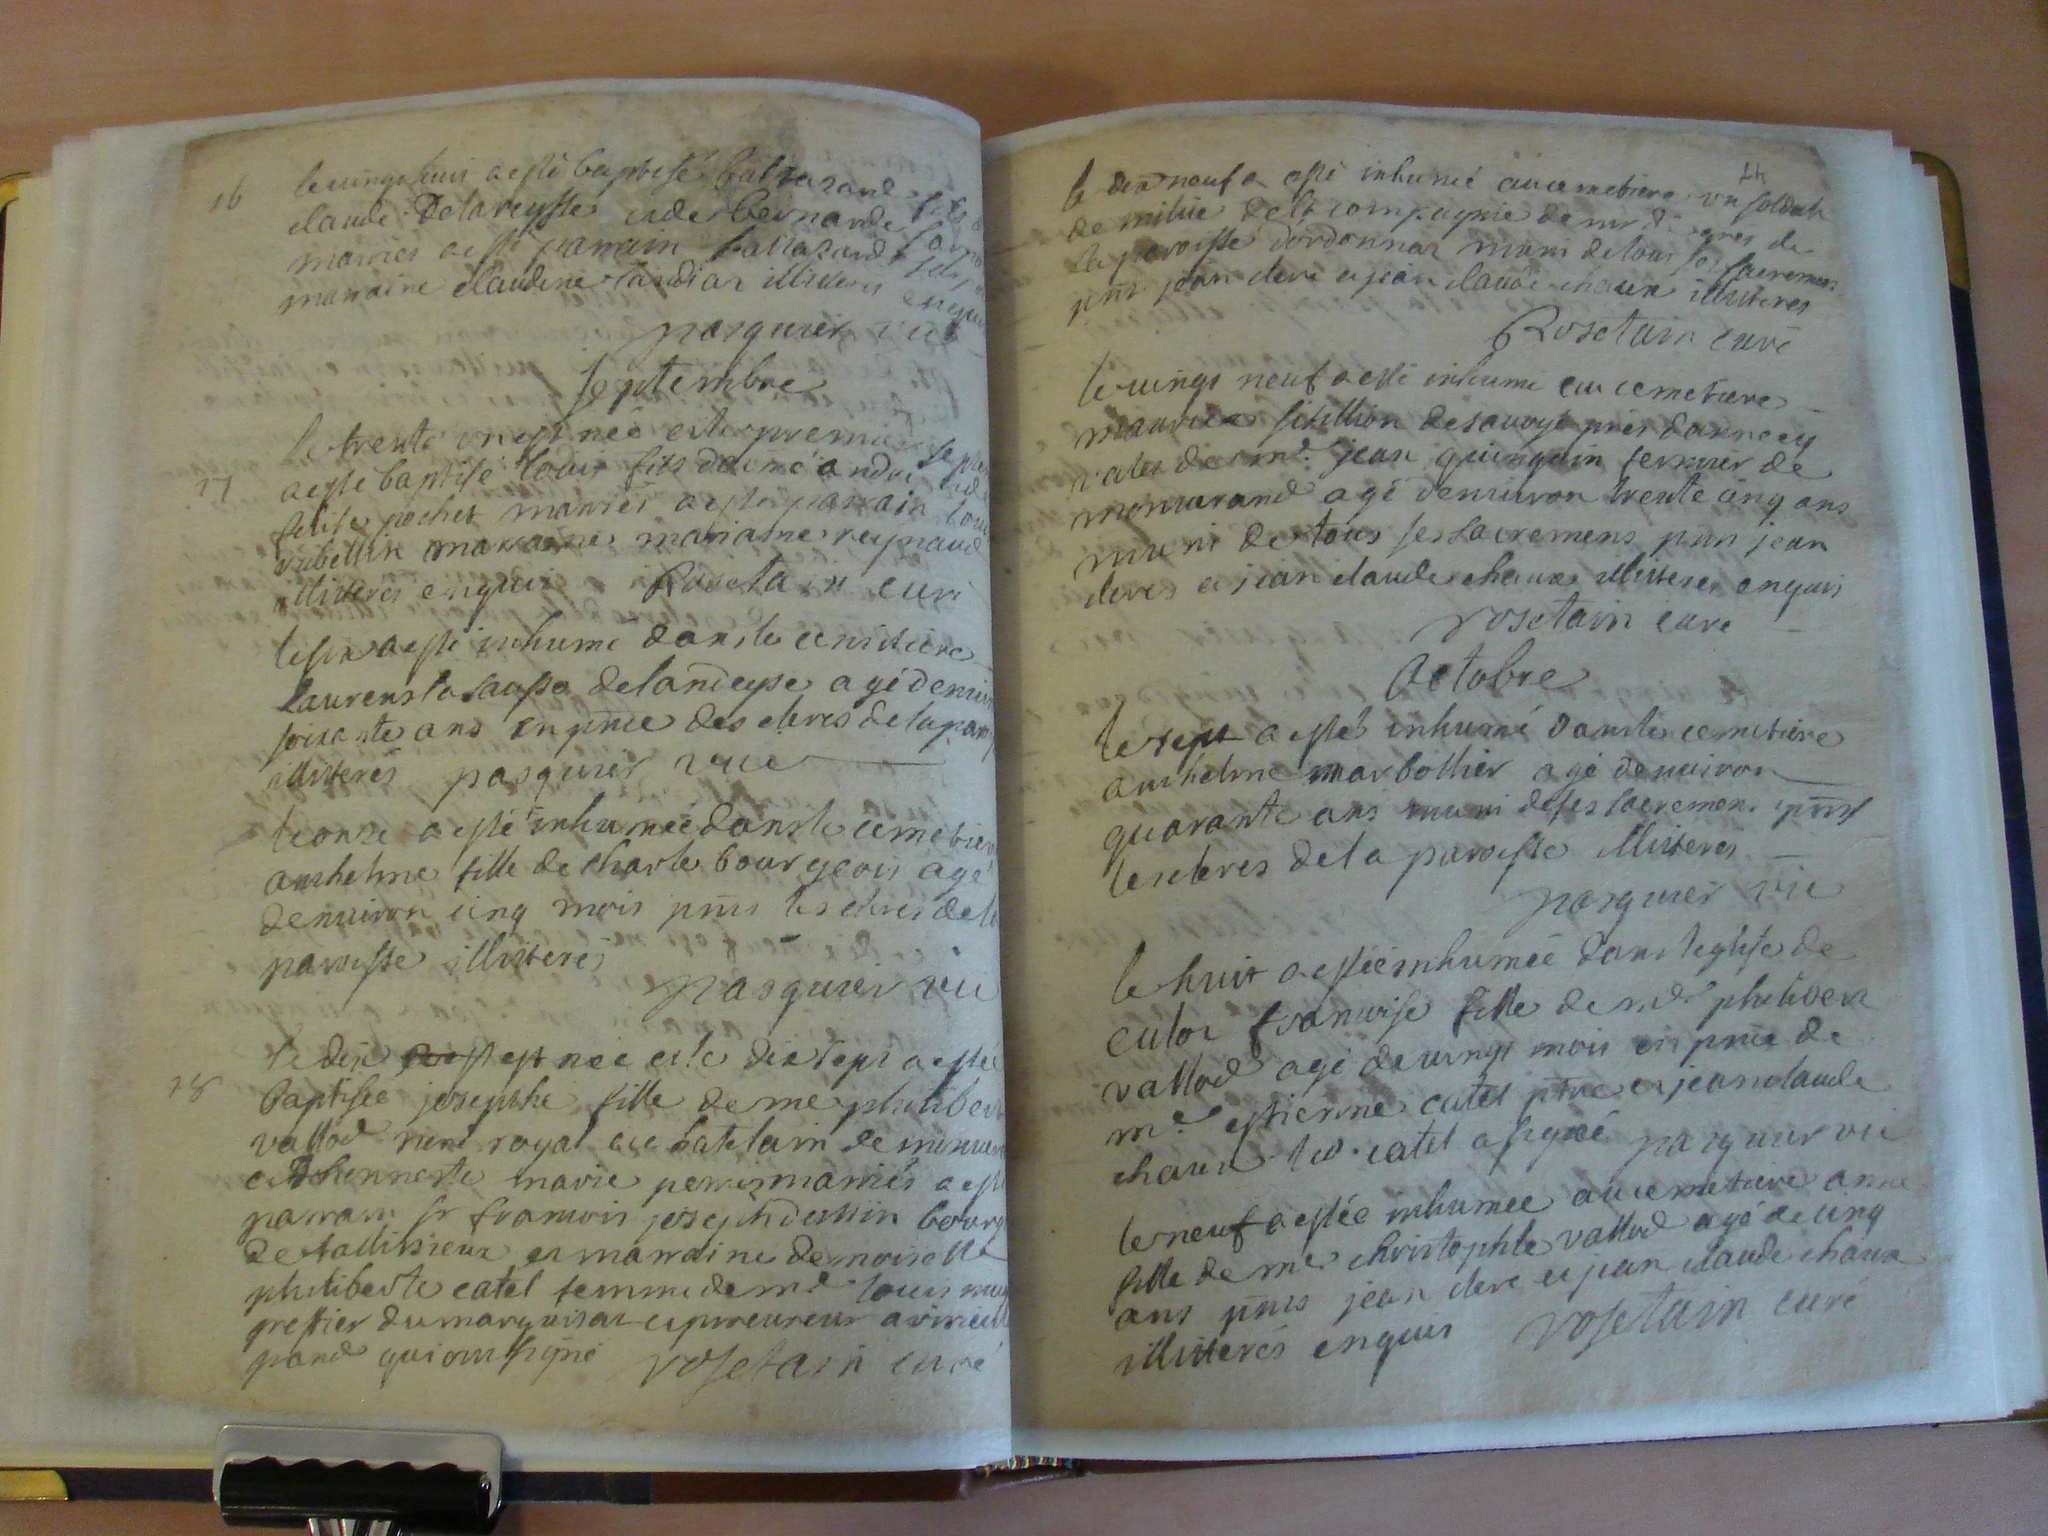 16
le vingt huit a esté baptisé baltazard fils de
claude Delareysse et de bernarde
mariés a esté parrain baltazard
marraine claudine tardiat illiteres enquis
pasquier vic
septembre
17
le trente un est née et le premier septe
a esté baptisé louis fils de me andré
felise pochet mariés a esté parrain louis
rubellin marraine mariane reynaud
illiterés enquis Rosetain curé
le six a esté inhumé dans le cemitiere
laurens la sausse delandeyse agé denviron
soixante ans en pnce des clercs de la paroi
illiterés pasquier vic
le onze a esté inhumée dans le cemetier
anthelme fille de charle bourgeois agé
denviron cinq mois pnts les clercs de la
paroisse illiterés
pasquier vic
18
le dix est née et le dix sept a estée
baptisée josephe fille de me philiber
vallod nere royal et chatelain de
et honneste marie perrin mariés a esté
parrain sr francois joseph dessin bourg
de tallissieux et marraine demoiselle
philiberte catel femme de md louis
greffier du marquisat et procureur a virieu le
grand qui ont signé rosetain curé
le dix neuf a esté inhumé au cemetiere un soldat
de milice de la compagnie de mr de
la paroisse dordonnaz muni de tous ses sacremens
pnts jean clerc et jean claude chaux illiteres
Rosetain curé
le vingt neuf a esté inhumé au cemetiere
maurice sibillion de savoye pres dannecy
valet de md jean guinguin fermier de
monverand agé denviron trente cinq ans
muni de tous ses sacremens pnts jean
clercs et jean claude chaux illiteres enquis
rosetain curé
octobre
le sept a esté inhumé dans le cemetiere
anthelme marbollier agé denviron
quarante ans muni de ses sacremens pnts
les clercs de la paroisse illiterés
pasquier vic
le huit a estée inhumée dans leglise de
culoz francoise fille de md philibert
vallod agé de vingt mois en pnce de
me estienne catel ptre et jean claude
chaux led. catel a signé pasquier vic
le neuf a estée inhumée au cemetiere anne
fille de me christophle vallod agé de cinq
ans pnts jean clerc et jean claude chaux
illiterés enquis rosetain curé